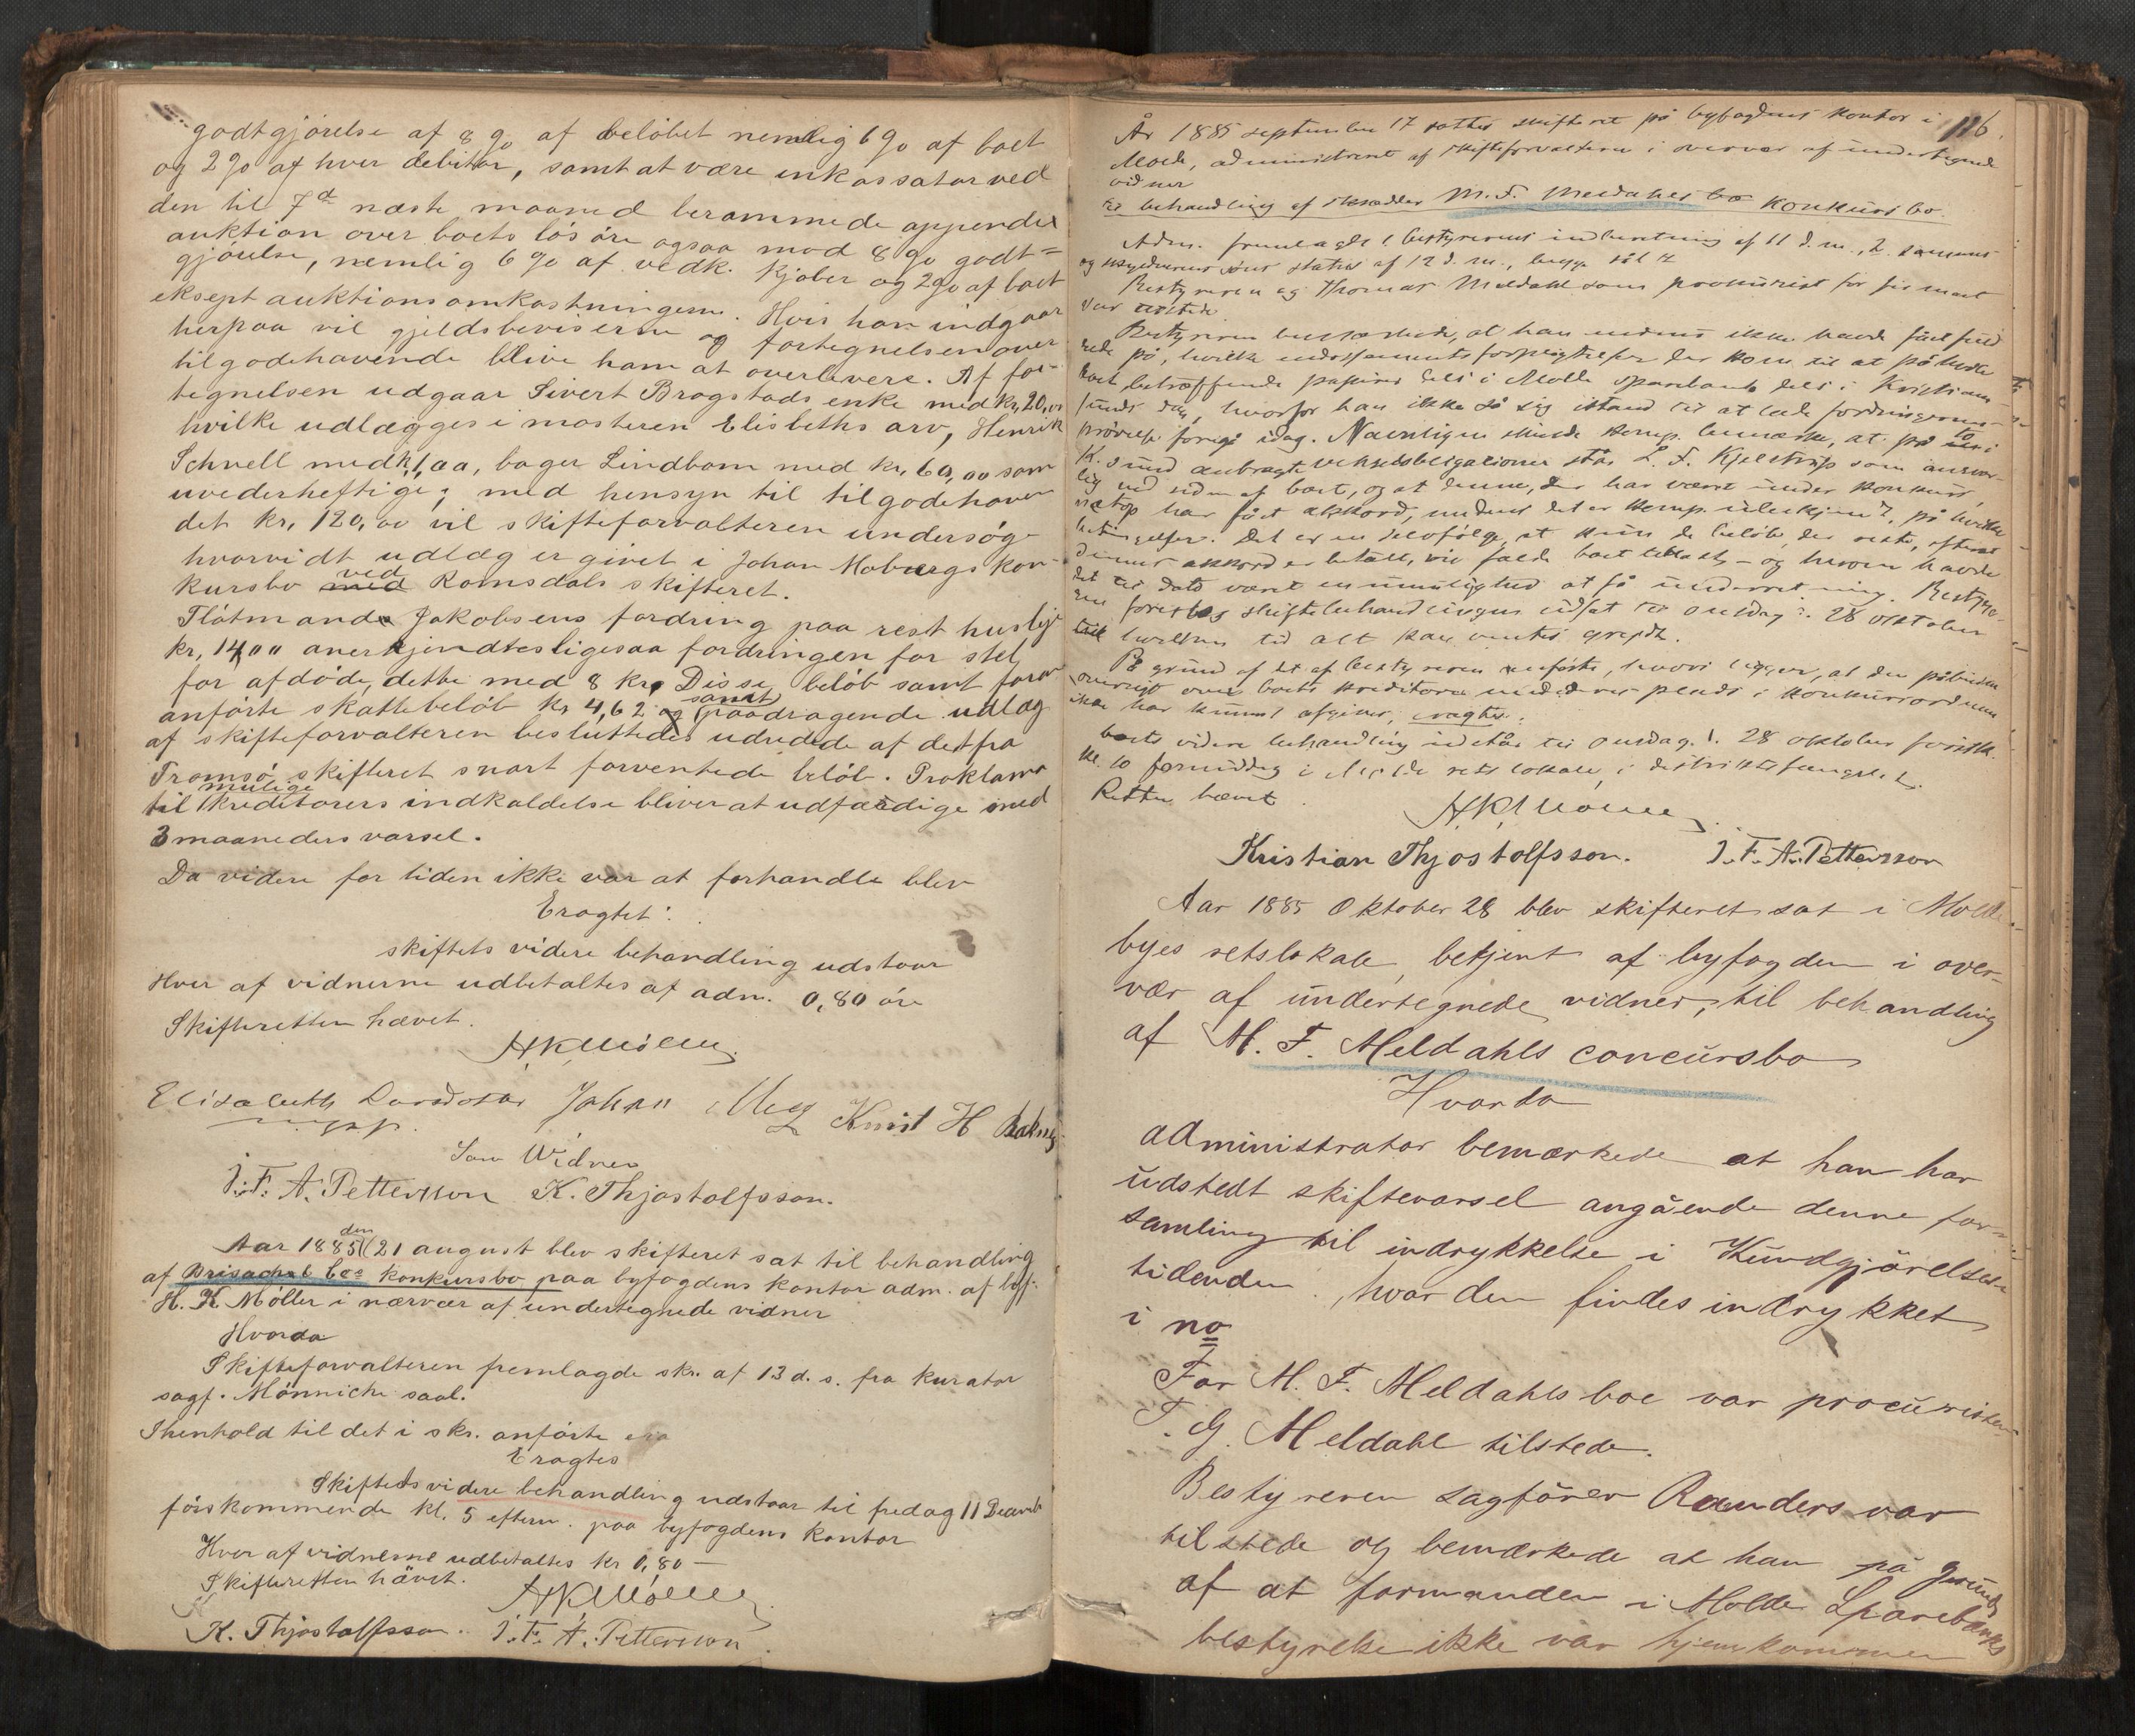 godtgjørelse af 8 % af beløbet nemlig 6 % af boet
og 2 % af hver debitor, samt at være inkassator ved
den til 7de næste maaned berammede
auktion over boets løsøre ogsaa mod 8 % godt=
gjørelse, nemlig 6 % af vedk. kjøber og 2 % af boet
eksept auktionsomkostningerne. Hvis han indgaar
herpaa vil gjeldsbeviserne og fortegnelsen over
tilgodehavende blive ham at overlevere. Af for-
tegnelsen udgaar Sivert Brogstads enke med kr. 20,00
hvilke udlægges i mosteren Elisbeths arv, Henrik
Schnell med kr 1,00, bager Lindbom med kr. 60,00 som
uvederheftige; med hensyn til tilgodehaven
det kr. 120,00 vil skifteforvalteren undersøge
hvorvidt udlæg er givet i Johan Mobergs kon-
kursbo med ved Romsdals skifteret.
Flötmand Jakobsens fordring paa rest husleje
kr. 14,00 anerkjendtes ligesaa fordringen for stel
for afdøde, dette med 8 kr. Disse beløb samt foran
anførte skattebeløb kr 4,62 og samt paadragende udlæg
af skifteforvalteren besluttedes udredede af det fra
Tromsø skifteret snart forventede beløb. Proklama
til mulige kreditorers indkaldelse bliver at udfærdige med
3 maaneders varsel.
Da videre for tiden ikke var at forhandle blev
Eragtet:
skiftets videre behandling udstaar
Hver af vidnerne udbetaltes af adm. 0,80 øre
Skifteretten hævet.
HKMöller
Elisabeth Johan Knut H
Som Vidner
J. F. A. Petterson K. Thjostolfsson.
Aar 1885 den 21 august blev skifteret sat til behandling
af konkursbo paa byfogdens kontor adm. af byf.
H. K. Möller i nærvær af undertegnede vidner
Hvorda
Skifteforvalteren fremlagde skr. af 13 d. s. fra kurator
sagf. Mönniche saal.
I henhold til det i skr. anførte
Eragtes
Skiftets videre behandling udstaar til fredag 11 Decemb
førstkommende kl. 5 efterm. paa byfogdens kontor
Hver af vidnerne udbetaltes kr 0,80 —
Skifteretten hævet.
HKMöller
K. Thjostolfsson. J. F. A. Petterson.
116.
År 1885 september 17 sattes skifteret på byfogdens kontor i
Molde, administreret af skifteforvalteren i overvær af undertegnede
vidner
til behandling af M. F. Meldahls bo konkursbo.
Adm. fremlagde 1. bestyrerens indberetning af 11 d. m., 2. sammes
og status af 12 d. m., begge
Bestyreren og Thomas Meldahl som prokurist for firmaet
var tilstede.
Bestyreren bemærkede, at han endnu ikke havde fået fuld
rede på, hvilke endossementsforpligtelser der kom til at påhvile
boet betræffende papirer dels i Molde sparebank dels i Kristian
sund, hvorfor han ikke så sig istand til at lade fordringernes
prøvelse foregå idag. Navnligen skulde komp. bemærke, at på to i
K.sund anbragte vekselobligationer står L. F. Kjelstrup som ansvar-
lig ved siden af boet, og at denne, der har været under konkurs,
netop har fået akkord, endnu det er komp. ubekjendt, på hvilke
betingelser. Det er en selvfølge, at kun de beløb, der reste, efterat
dennes akkord er betalt, vil falde boet tillast – og herom havde
det til dato været en umulighed at få underretning. Bestyre-
ren foreslog skiftebehandlingen udsat til onsdag d. 28 oktober
hvilken tid alt kan ventes greiet.
På grund af det af bestyreren anførte, hvori ligger, at den påbudne
oversigt over boets kreditorer med deres plads i konkursordenen
ikke har kunnet afgives, eragtes:
boets videre behandling udstår til onsdag d. 28 oktober førstk.
kl. 10 formiddag i Molde retslokale i distriktsfængslet.
Retten hævet.
HKMöller
Kristian Thjostolfsson. J. F. A. Petterson
Aar 1885 Oktober 28 blev skifteret sat i Molde
byes retslokale, betjent af byfogden i over-
vær af undertegnede vidner, til behandling
af M. F. Meldahls concursbo
Hvorda
administrator bemærkede at han har
udstedt skiftevarsel angående denne for-
samling til indrykkelse i Kundgjörelses
tidenden. hvor den findes indrykket
i no
For M. F. Meldahls boe var procuristen
T. G. Meldahl tilstede.
Bestyreren sagfører Randers var
tilstede og bemærkede at han på grund
af at formanden i Molde Sparebanks
bestyrelse ikke var hjemkommen